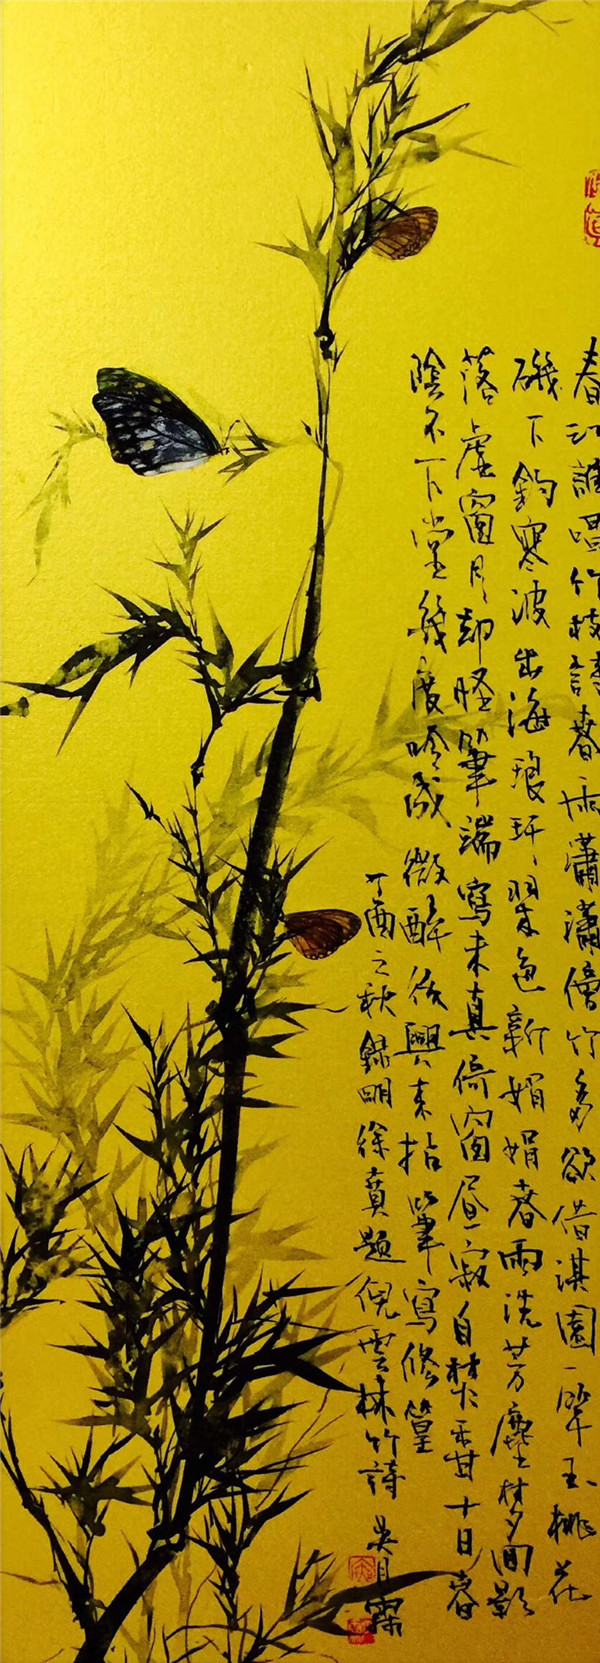 春江誰唱竹枝謌春雨瀟瀟傍竹多欲借淇園一竿玉桃花
磯下釣寒波出海琅玕翠色新娟娟春雨洗芳塵梦回影
落虛窗月却怪筆端寫未真倚窗昼寂自焚香十日春
陰不下堂幾度吟成微醉後興來拈筆寫修篁
丁酉之秋錄明徐賁題倪雲林竹詩 吳月霖